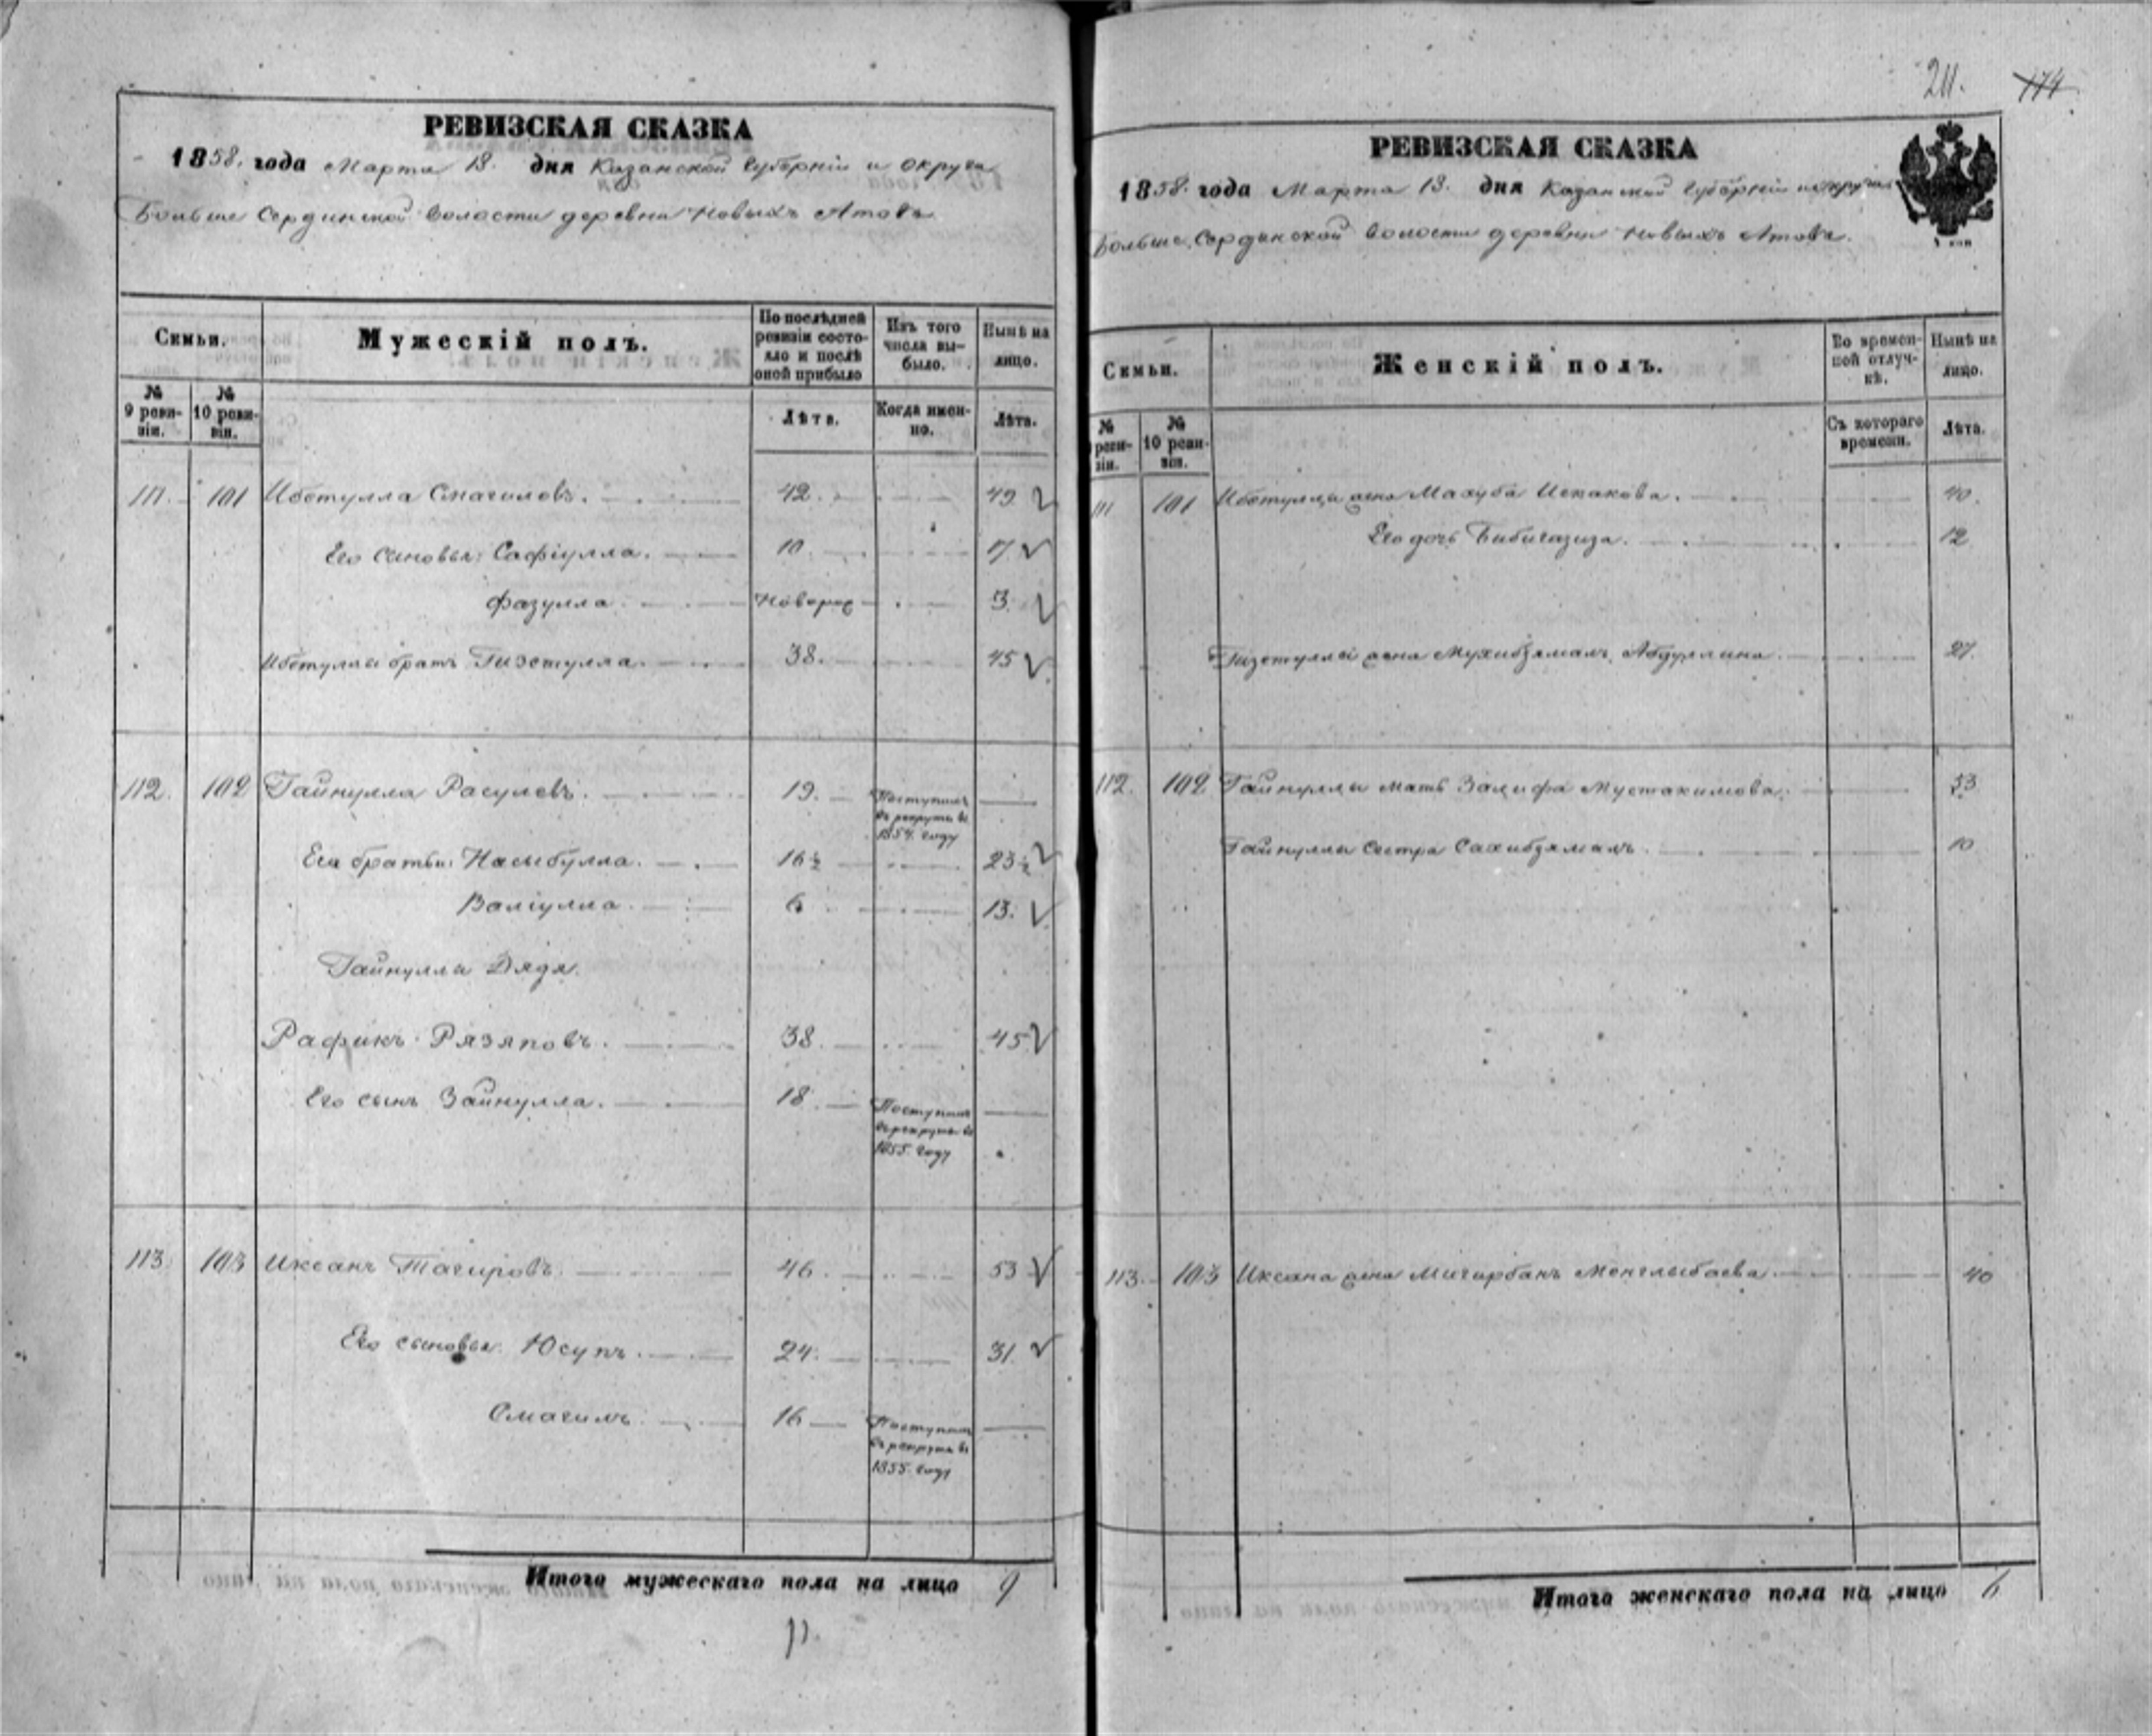 РЕВИЗСКАЯ СКАЗКА
1858. года Марта 13. дня Казанской Губерніи и округа
Больше Сердинской волости деревни Новыхъ Атовъ
Семьи.
Мужескій полъ.
По послѣдней ревизіи состояло и послѣ оной прибыло
Изъ того числа выбыло.
Нынѣ на лицо.
№ 9 ревизіи.
№ 10 ревизіи.
Лѣта.
Когда именно.
Лѣта.
111. 101 Ибетулла Смагиловъ. 42. 49.
Его сыновья: Сафіулла. 10. 17.
Фазулла. Новорož 3.
Ибетуллы братъ Гизетулла. 38. 45
112. 102 Гайнулла Расулевъ. 19. Поступилъ
въ рекруты въ
1854. году
Его братья: Насыбулла. 16½ 23½
Валіулла. 6 13.
Гайнуллы Дядя.
Рафикъ Рязяповъ. 38. 45
Его сынъ Зайнулла. 18. Поступилъ
въ рекруты въ
1855. году
113. 103 Иксанъ Тагировъ. 46. 53
Его сыновья Юсупъ. 24. 31.
Смагилъ. 16 Поступилъ
въ рекруты въ
1855. году
Итого мужескаго пола на лицо 9
211. 174
РЕВИЗСКАЯ СКАЗКА
1858. года Марта 13. дня Казанской Губерніи и округа
Больше Сердинской волости деревни Новыхъ Атовъ.
Семьи.
Женскій полъ.
Во временной отлучкѣ.
Нынѣ на лицо.
№ ревизіи.
№ 10 ревизіи.
Съ котораго времени.
Лѣта.
111 101 Ибетуллы жена Махуба Исхакова. 40.
Его дочь Бибигазиза. 12
Гизетуллы жена Мухибзямалъ Абдуллина. 27.
112. 102 Гайнуллы мать Залифа Мустакимова. 53
Гайнуллы сестра Сахибзямалъ. 10
113. 103 Иксана жена Мигирбанъ Менглыбаева. 40
Итого женскаго пола на лицо 6